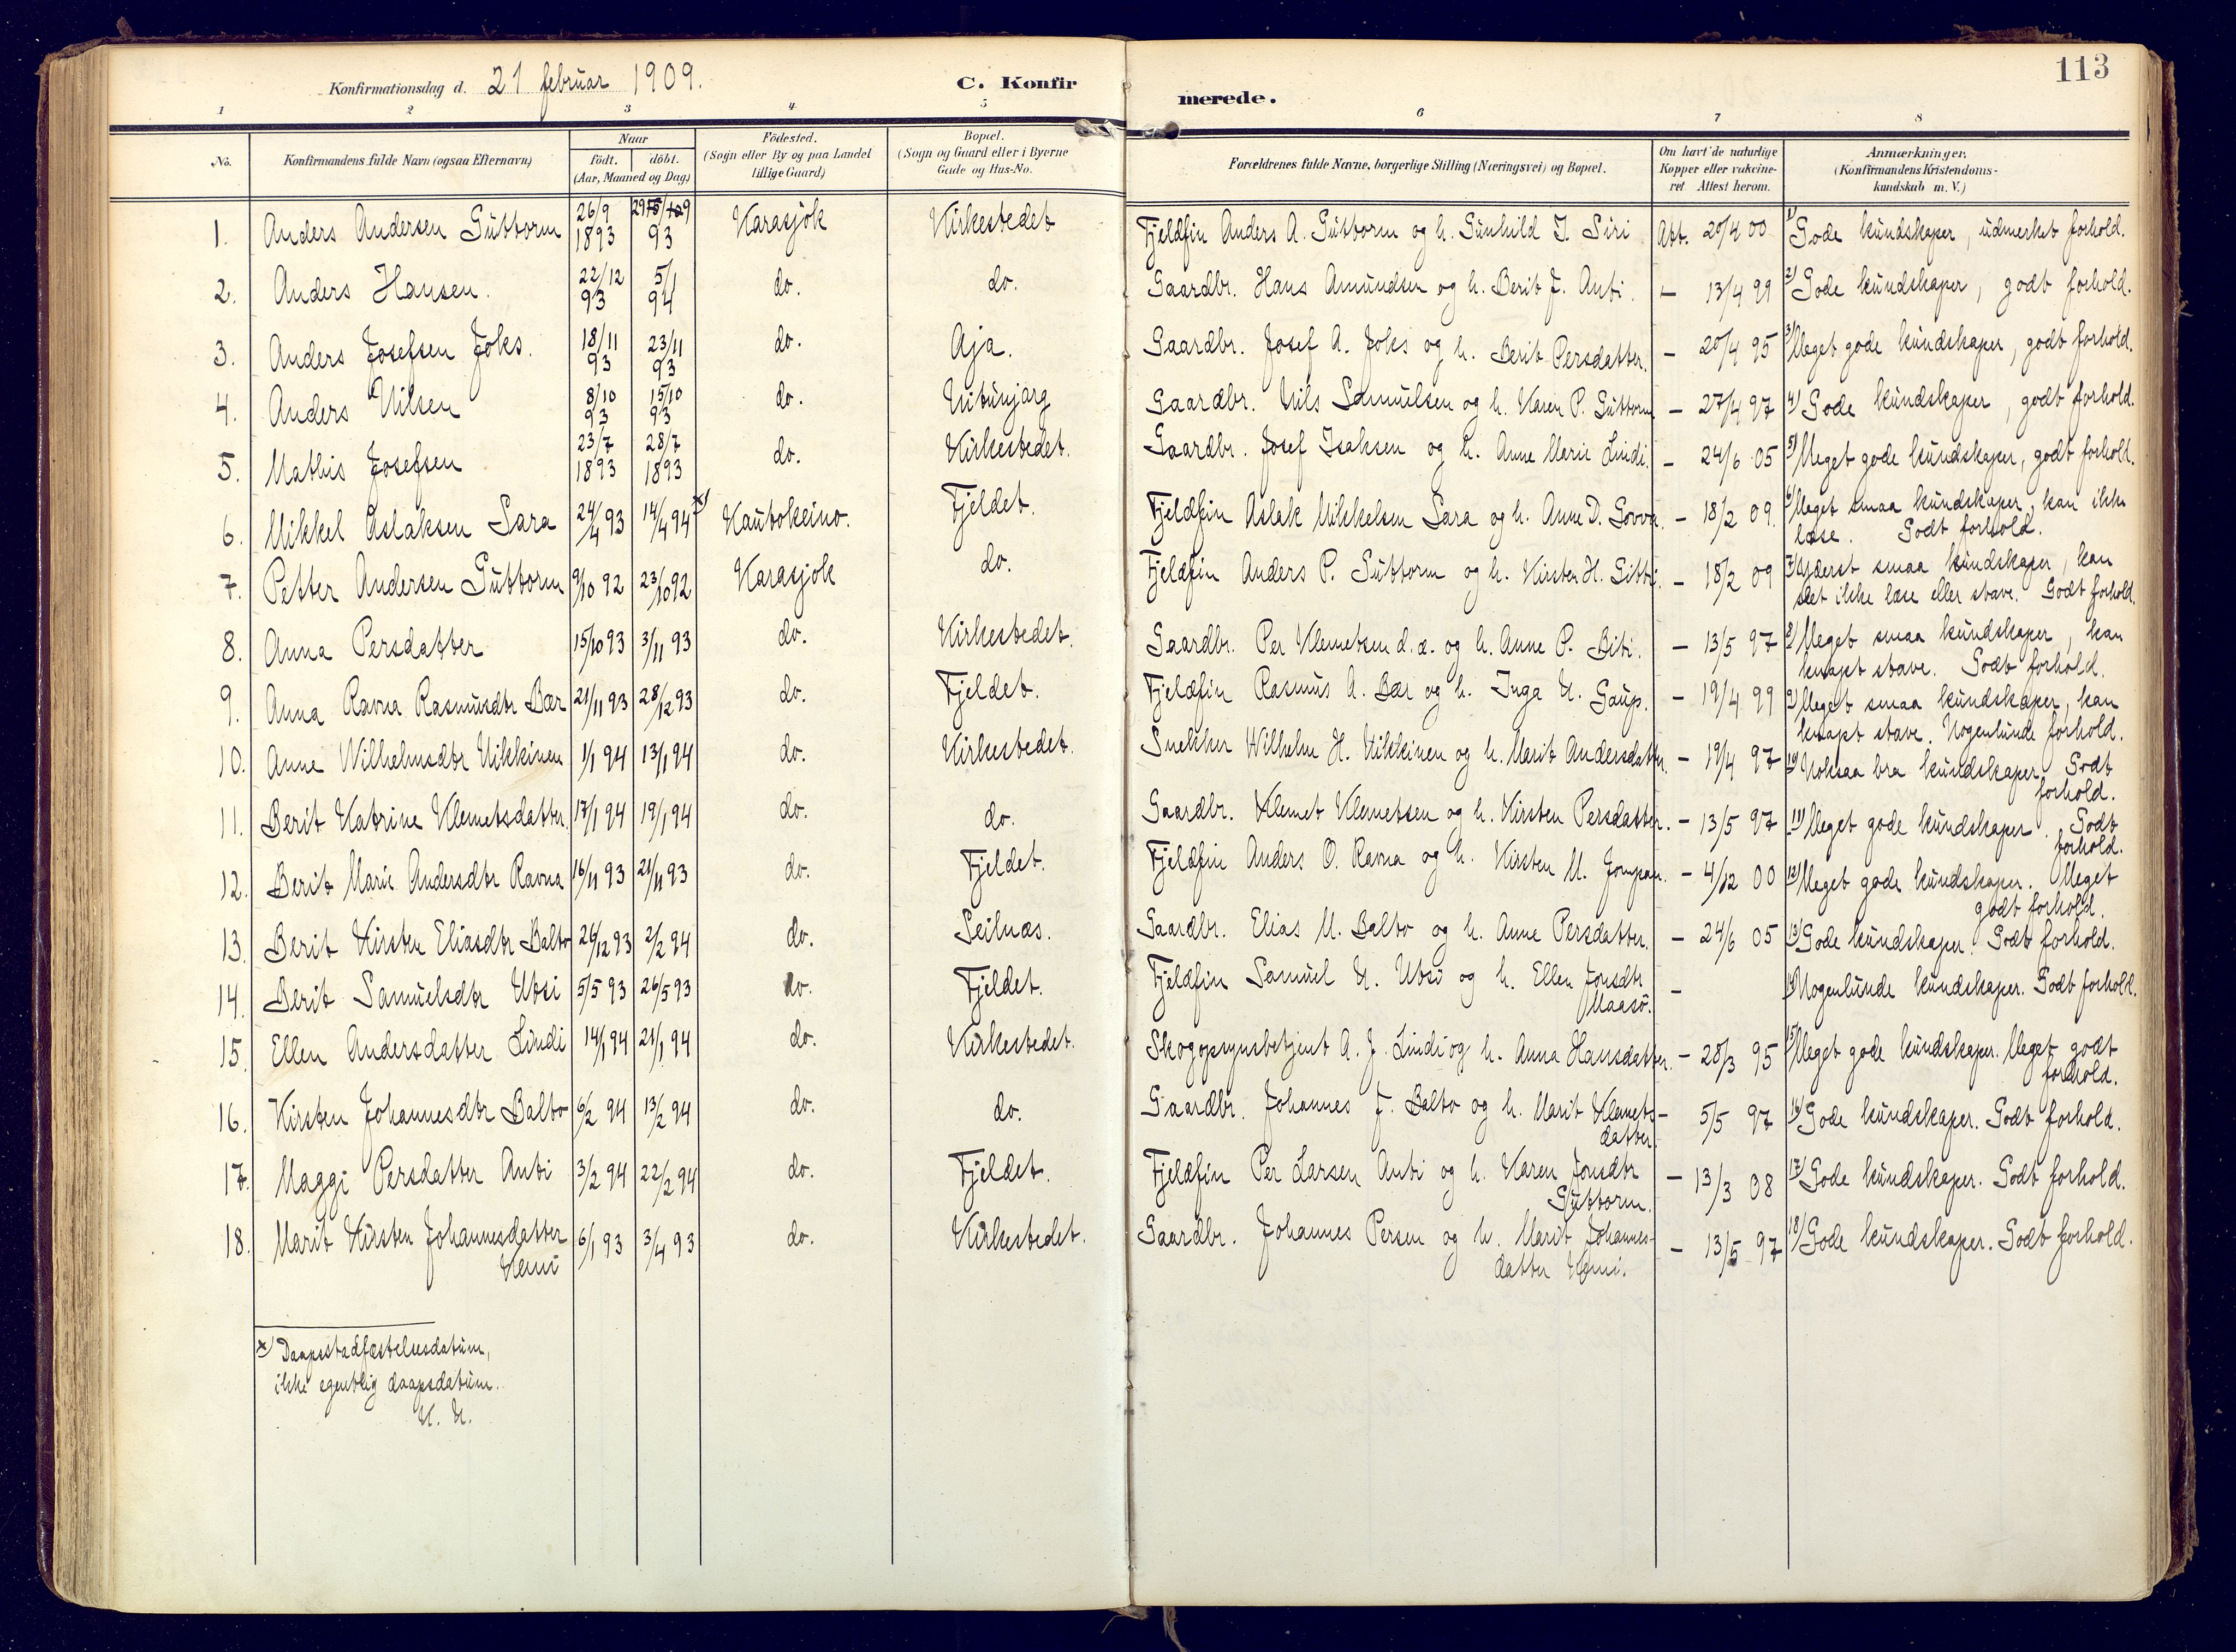 113
Konfirmationsdag d. 21 februar 1909. C. Konfir
merede.
1 2 3 4 5 6 7 8
No. Konfirmandens fulde Navn (ogsaa Efternavn) Naar födt. döbt. (Aar, Maaned og Dag) Födested. (Sogn eller By og paa Landet tillige Gaard) Bopæl. (Sogn og Gaard eller i Byerne Gade og Hus-No. Forældrenes fulde Navne, borgerlige Stilling (Næringsvei) og Bopæl. Om havt de naturlige Kopper eller vakcineret Attest herom. Anmærkninger. (Konfirmandens Kristendomskundskab m. V.)
1. Anders Andersen Guttorm 26/9 1893 93 Karasjok Kirkestedet Fjeldfin Anders A. Guttorm og h. Gunhild I. Siri Att. 20/4 00 1) Gode kundskaper, udmerket forhold.
2. Anders Hansen. 22/12 93 5/1 94 do. do. Gaardbr. Hans Amundsen og h. Berit J. Anti. – 13/4 99 2) Gode kundskaper, godt forhold.
3. Anders Josefsen Joks. 18/11 93 23/11 93 do. Aja. Gaardbr. Josef A. Joks og h. Berit Persdatter. – 20/4 95 3) Meget gode kundskaper, godt forhold.
4. Anders Nilsen 8/10 93 15/10 93 do. Nitunjarg Gaardbr. Nils Samulsen og h. Karen P. Guttorm – 27/4 97 4) Gode kundskaper, godt forhold.
5. Mathis Josefsen 23/7 1893 28/7 1893 do. Kirkestedet. Gaardbr. Josef Isaksen og h. Anne Marie Lindi. – 24/6 05 5) Meget gode kundskaper, godt forhold.
6. Mikkel Aslaksen Sara 24/4 93 14/4 94 x) Kautokeino. Fjeldet. Fjeldfin Aslak Mikkelsen Sara og h. Anne D. Sovva. – 18/2 09. 6) Meget smaa kundskaper, kan ikke
læse. Godt forhold.
7. Petter Andersen Guttorm 9/10 92 23/10 92 Karasjok do. Fjeldfin Anders P. Guttorm og h. Kirsten H. Sitti. – 18/2 09 7) Yderst smaa kundskaper, kan
slet ikke læse eller stave. Godt forhold.
8. Anna Persdatter 15/10 93 3/11 93 do. Kirkestedet. Gaardbr. Per Klemetsen d.æ. og h. Anne P. Biti. – 13/5 97 8) Meget smaa kundskaper, kan
knapt stave. Godt forhold.
9. Anna Ravna Rasmusdtr Bær 21/11 93 28/12 93 do. Fjeldet. Fjeldfin Rasmus A. Bær og h. Inga N. Gaup. – 19/4 99 9) Meget smaa kundskaper, kan
knapt stave. Nogenlunde forhold.
10. Anne Wilhelmsdtr Nikkinen 1/1 94 13/1 94 do. Kirkestedet. Snekker Wilhelm H. Nikkinen og h. Marit Andersdatter. – 19/4 97 10) Noksaa bra kundskaper. Godt
forhold.
11. Berit Katrine Klemetsdatter. 17/1 94 19/1 94 do. do. Gaardbr. Klemet Klemetsen og h. Kirsten Persdatter. – 13/5 97 11) Meget gode kundskaper. Godt
forhold.
12. Berit Marie Andersdtr Ravna 16/11 93 21/11 93 do. Fjeldet. Fjeldfin Anders O. Ravna og h. Kirsten M. Jompan. – 4/12 00 12) Meget gode kundskaper. Meget
godt forhold.
13. Berit Kirsten Eliasdtr Balto 26/12 93 2/2 94 do. Seilnæs. Gaardbr. Elias M. Balto og h. Anne Persdatter. – 24/6 05 13) Gode kundskaper. Godt forhold.
14. Berit Samuelsdtr Utsi 5/5 93 26/5 93 do. Fjeldet. Fjeldfin Samuel N. Utsi og h. Ellen Jonsdtr – 14) Nogenlunde kundskaper. Godt forhold.
Maasö.
15. Ellen Andersdatter Lindi 14/1 94 21/1 94 do. Kirkestedet. Skogopsynsbetjent A. J. Lindi og h. Anna Hansdatter. – 28/3 95 15) Meget gode kundskaper. Meget godt
forhold.
16. Kirsten Johannesdtr Balto 6/2 94 13/2 94 do. do. Gaardbr. Johannes J. Balto og h. Marit Klemets- 5/5 97 16) Gode kundskaper. Godt forhold.
datter.
17. Maggi Persdatter Anti 3/2 94 22/2 94 do. Fjeldet. Fjeldfin Per Larsen Anti og h. Karen Jonsdtr – 13/3 08 17) Gode kundskaper. Godt forhold.
Guttorm.
18. Marit Kirsten Johannesdatter 6/1 93 3/4 93 do. Kirkestedet. Gaardbr. Johannes Persen og h. Marit Johannes- – 13/5 97 18) Gode kundskaper. Godt forhold.
Kemi datter Kemi.
x) Daapsstadfæstelsesdatum,
ikke egentlig daapsdatum.